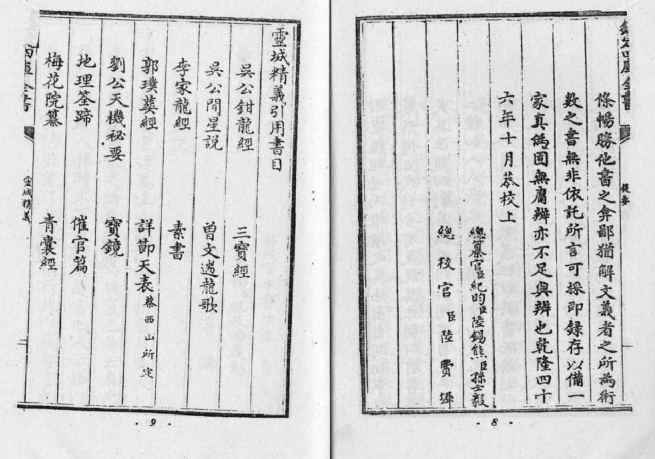 欽定四庫全書
提要
條暢勝他書之弇鄙猶解文義者之所為術
數之書無非依託所言可採即錄存以備一
家真偽固無庸辨亦不足與辨也乾隆四十
六年十月恭校上
總纂官臣紀昀臣陸錫熊臣孫士毅
總校官臣陸費墀
·8·
靈城精義引用書目
吳公鉗龍經 三寶經
吳公間星說 曾文遄龍歌
李家龍經 素書
郭璞葬經 詳節天表 蔡西山所定
劉公天機秘要 寶鏡
地理筌蹄 催官篇
梅花院纂 青囊經
四庫全書
靈城精義
二
·9·